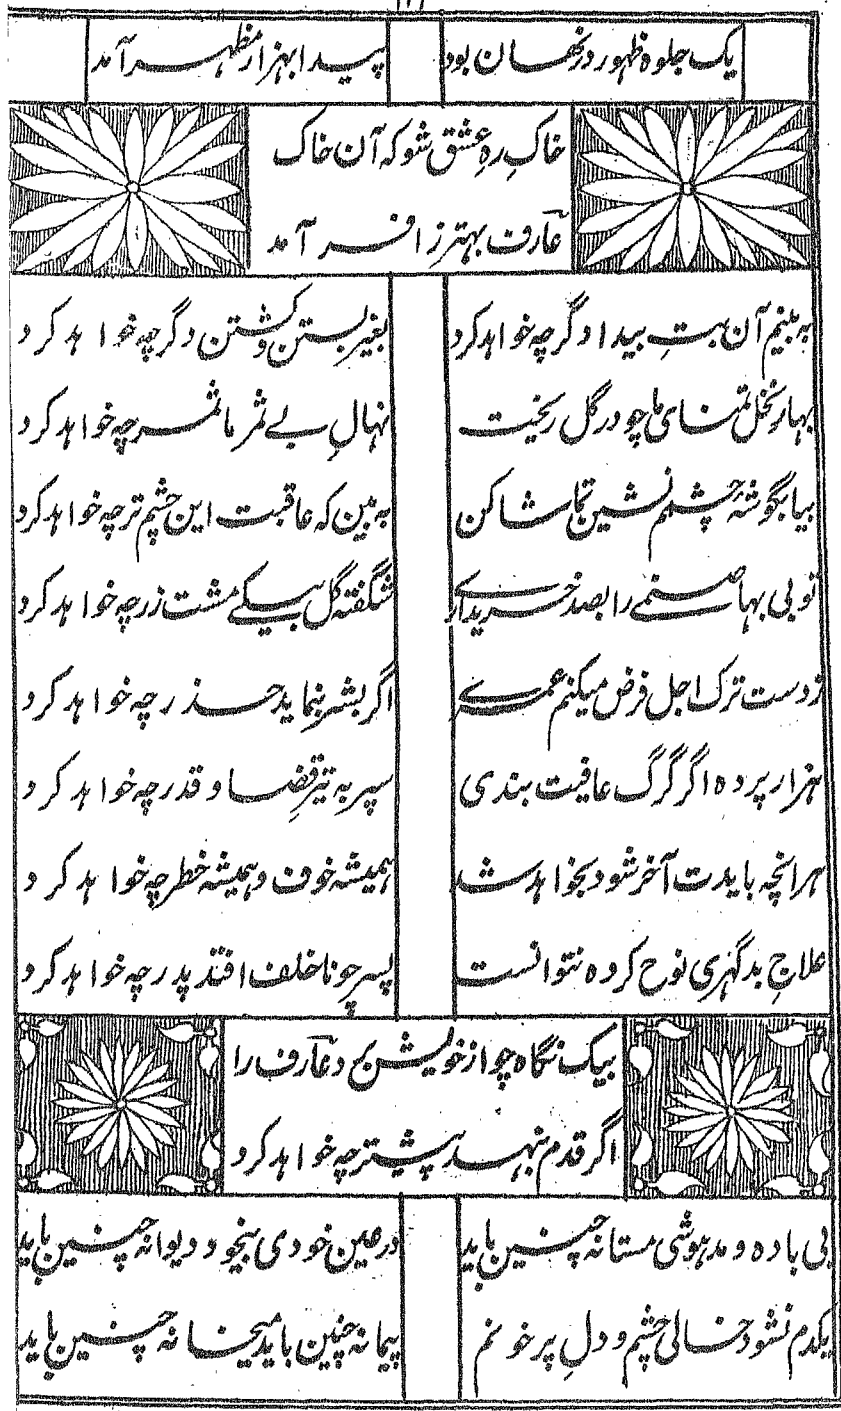 یک جلوه ظهور در نهان بود پیدا بهزار مظهر آمد
خاکِ رهِ عشق شو که آن خاک
عارف بهتر ز افسر آمد
به بینم آن بتِ بیداد گر چه خواهد کرد بغیر بستن و کشتن دگر چه خواهد کرد
بهار نخل تمنای ما چو در گل ریخت نهالِ بے ثمر ما ثمر چه خواهد کرد
بیا بگوشهٔ چشمم نشین تماشا کن به بین که عاقبت این چشم تر چه خواهد کرد
تو بی بها صنمے را بصد خریداری شگفته گل بیکے مشت زر چه خواهد کرد
ز دست ترک اجل فرض میکنم عمرے اگر بشر بنماید حذر چه خواهد کرد
هزار پرده اگر گرگ عافیت بندی سپر به تیرِ قضا و قدر چه خواهد کرد
هرانچه بایدت آخر شود بخواهد شد همیشه خوف و همیشه خطر چه خواهد کرد
علاجِ بدگهری نوح کرده نتوانست پسر چو ناخلف افتد پدر چه خواهد کرد
بیک نگاه چو از خویش برد عارف را
اگر قدم بنهد پیشتر چه خواهد کرد
بی باده و مدهوشی مستانه چنین باید در عین خودی بیخود و دیوانه چنین باید
یکدم نشود خالی چشم و دلِ پر خونم پیمانه چنین باید میخانه چنین باید